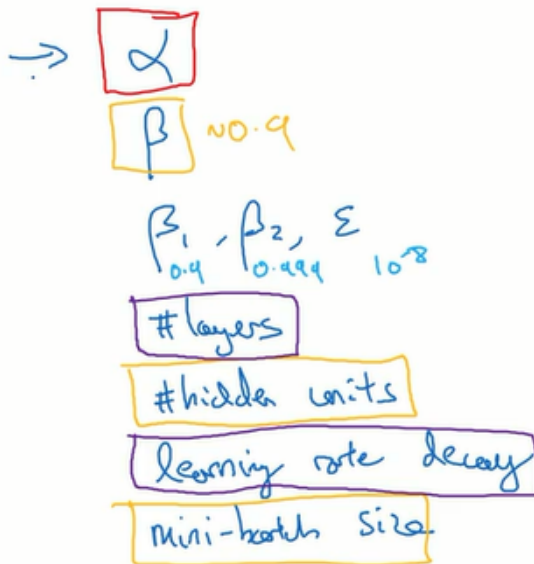 → α
β ~0.9
β₁, β₂, ε
0.9 0.999 10⁻⁸
#layers
#hidden units
learning rate decay
mini-batch size